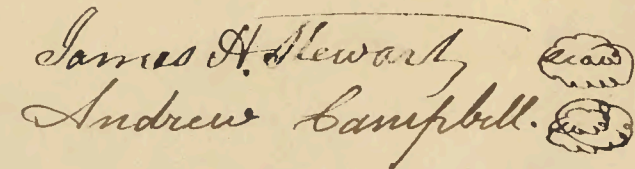 James H. Stewart seal
Andrew Campbell. seal